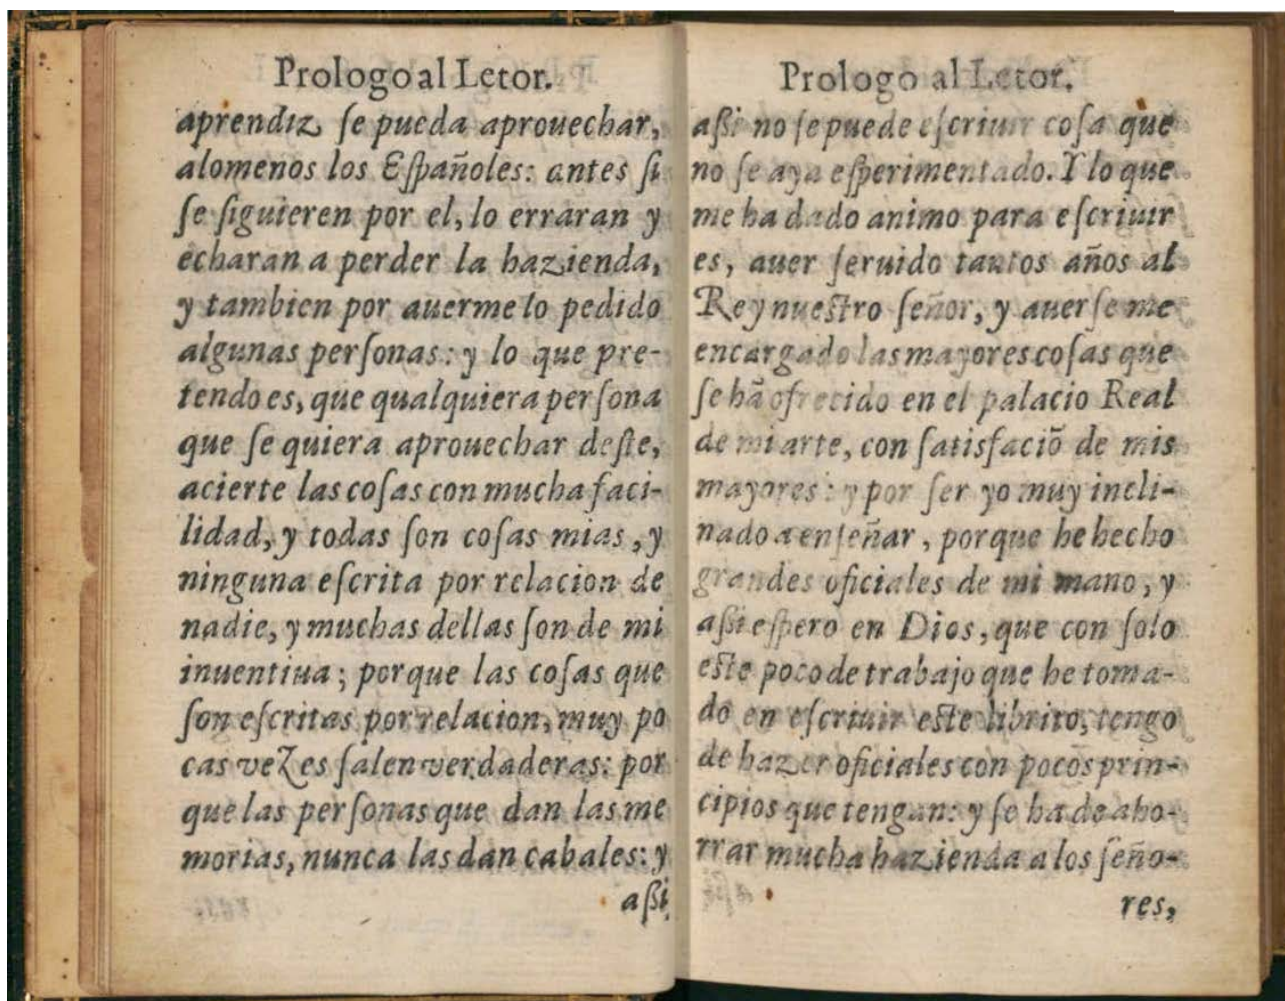 Prologo al Letor.
aprendiz ſe pueda aprouechar,
alomenos los Eſpañoles: antes ſi
ſe ſiguieren por el, lo erraran y
echaran a perder la hazienda,
y tambien por auermelo pedido
algunas perſonas: y lo que pre-
tendo es, que qualquiera perſona
que ſe quiera aprouechar deſte,
acierte las coſas con mucha faci-
lidad, y todas ſon coſas mias, y
ninguna eſcrita por relacion de
nadie, y muchas dellas ſon de mi
inuentiua; porque las coſas que
ſon eſcritas por relacion, muy po
cas vezes ſalen verdaderas: por
que las perſonas que dan las me
morias, nunca las dan cabales: y
aßi
Prologo al Letor.
aßi no ſe puede eſcriuir coſa que
no ſe aya eſperimentado. Y lo que
me ha dado animo para eſcriuir
es, auer ſeruido tantos años al
Rey nueſtro ſeñor, y auerſe me
encargado las mayores coſas que
ſe hã ofrecido en el palacio Real
de mi arte, con ſatisfaciõ de mis
mayores: y por ſer yo muy incli-
nado a enſeñar, porque he hecho
grandes oficiales de mi mano, y
aßi eſpero en Dios, que con ſolo
eſte poco de trabajo que he toma-
do en eſcriuir eſte librito, tengo
de hazer oficiales con pocos prin-
cipios que tengan: y ſe ha de aho-
rrar mucha hazienda a los ſeño-
res,